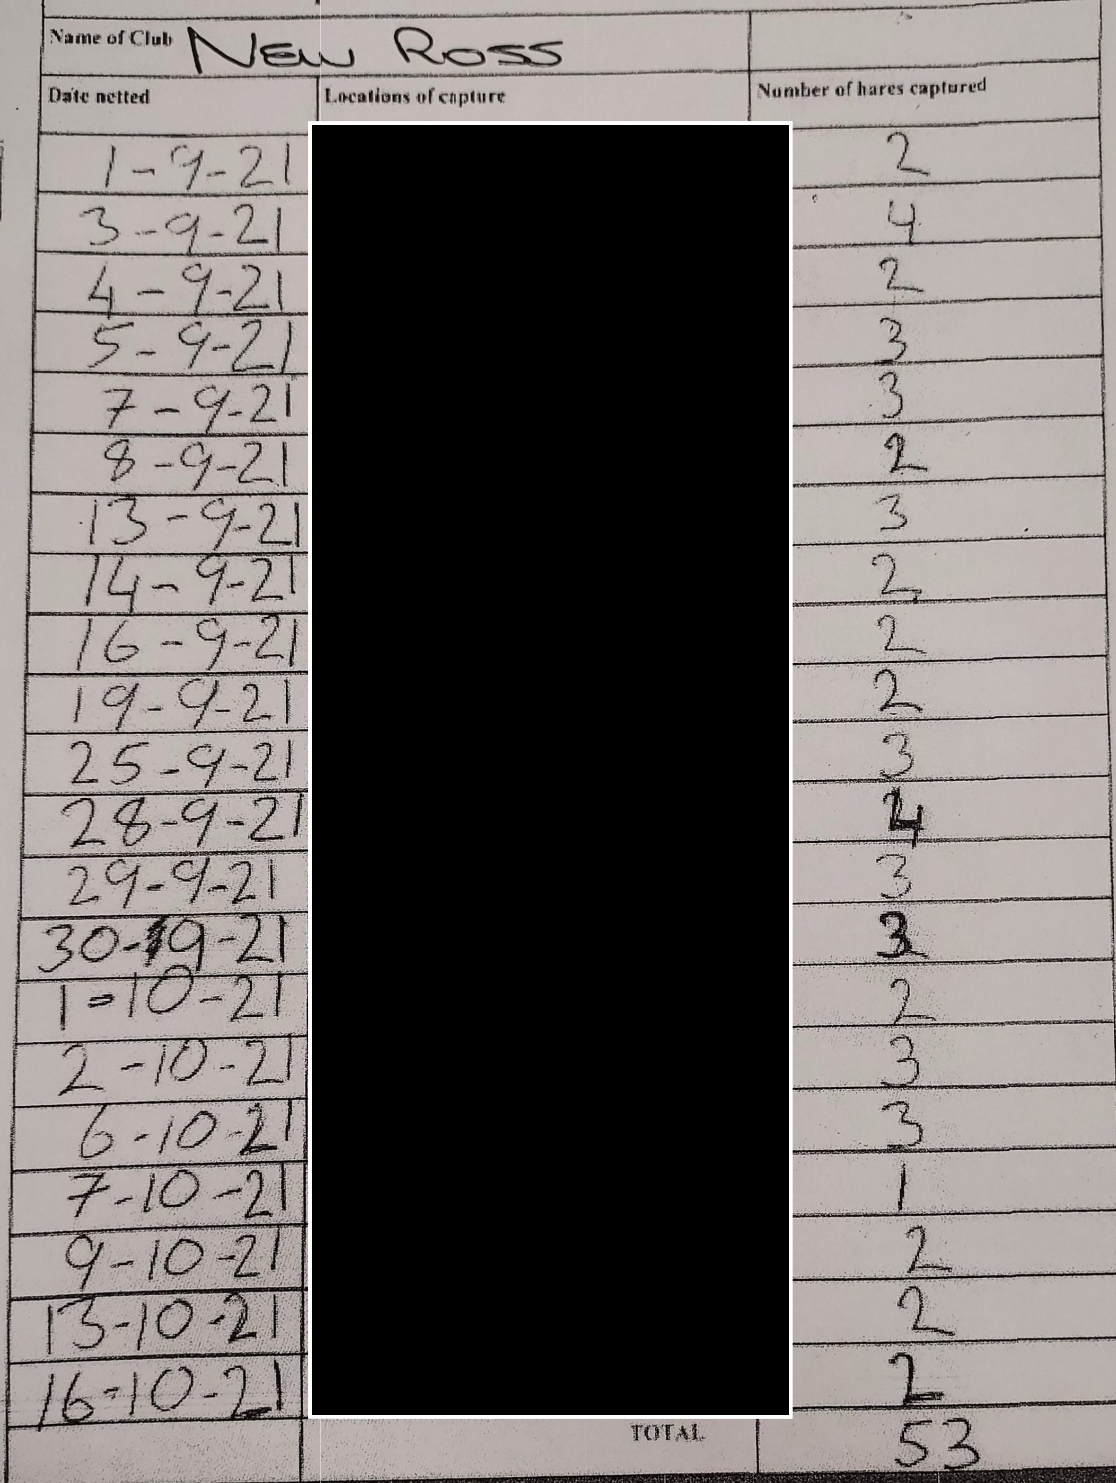 Name of Club NEW ROSS
Date netted Locations of capture Number of hares captured
1-9-21 2
3-9-21 4
4-9-21 2
5-9-21 3
7-9-21 3
8-9-21 2
13-9-21 3
14-9-21 2
16-9-21 2
19-9-21 2
25-9-21 3
28-9-21 4
29-9-21 3
30-9-21 3
1=10-21 2
2-10-21 3
6-10-21 3
7-10-21 1
9-10-21 2
13-10-21 2
16-10-21 2
TOTAL 53